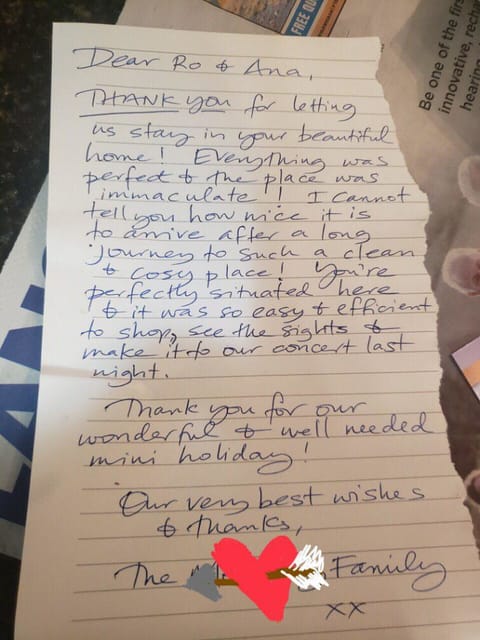 FREE QU
Be one of the firs
innovative, rech
hearing
Dear Ro & Ana,
THANK YOU for letting
us stay in your beautiful
home! Everything was
perfect & the place was
immaculate! I cannot
tell you how nice it is
to arrive after a long
journey to such a clean
& cosy place! You're
perfectly situated here
& it was so easy & efficient
to shop, see the sights &
make it to our concert last
night.
Thank you for our
wonderful & well needed
mini holiday!
Our very best wishes
& thanks,
The Family
xx